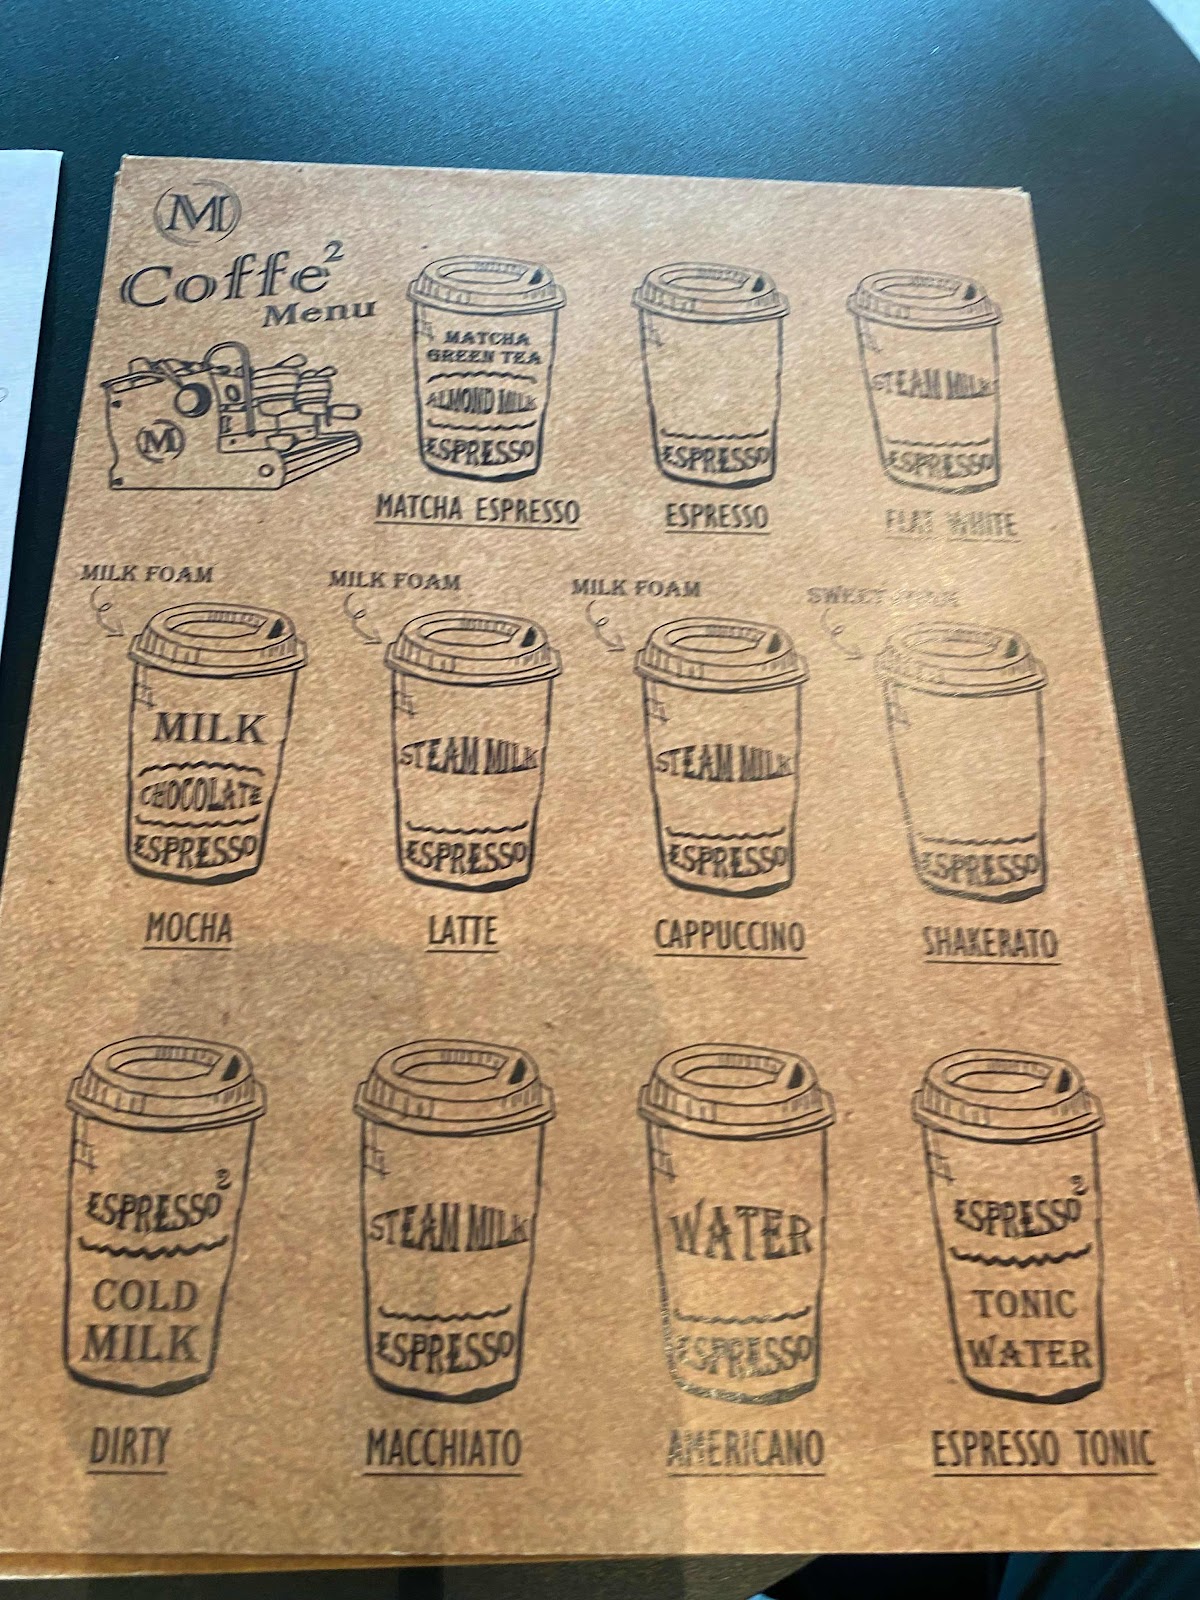 M
Coffe²
Menu
M
MATCHA
GREEN TEA
ALMOND MILK
ESPRESSO
MATCHA ESPRESSO
ESPRESSO
ESPRESSO
STEAM MILK
ESPRESSO
FLAT WHITE
MILK FOAM
MILK
CHOCOLATE
ESPRESSO
MOCHA
MILK FOAM
STEAM MILK
ESPRESSO
LATTE
MILK FOAM
STEAM MILK
ESPRESSO
CAPPUCCINO
SWEET FOAM
ESPRESSO
SHAKERATO
ESPRESSO²
COLD
MILK
DIRTY
STEAM MILK
ESPRESSO
MACCHIATO
WATER
ESPRESSO
AMERICANO
ESPRESSO²
TONIC
WATER
ESPRESSO TONIC